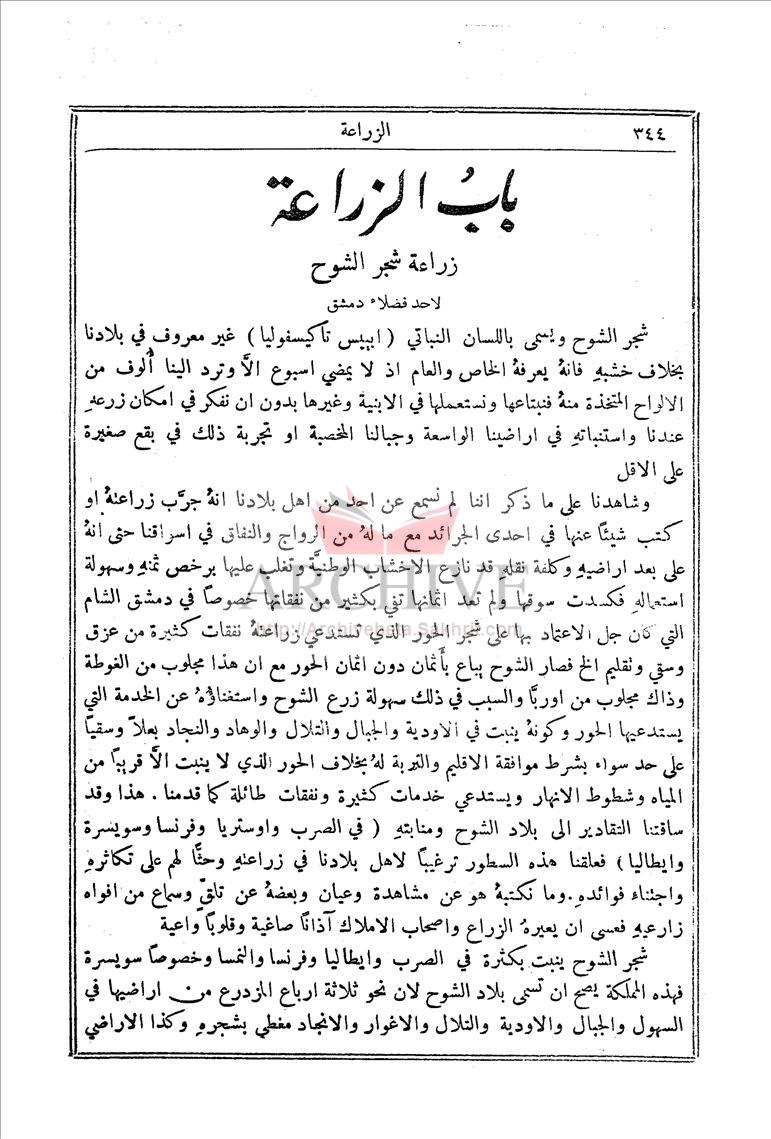 ٣٤٤ الزراعة
باب الزراعة
زراعة شجر الشوح
لاحد فضلاء دمشق
شجر الشوح ويسمى باللسان النباتي (ابييس تاكيسفوليا) غير معروف في بلادنا
بخلاف خشبهِ فانهُ يعرفهُ الخاص والعام اذ لا يمضي اسبوع الاَّ وترد الينا أُلوف من
الالواح المتخذة منهُ فنبتاعها ونستعملها في الابنية وغيرها بدون ان نفكر في امكان زرعهِ
عندنا واستنباتهِ في اراضينا الواسعة وجبالنا المخصبة او تجربة ذلك في بقع صغيرة
على الاقل
وشاهدنا على ما ذكر اننا لم نسمع عن احد من اهل بلادنا انهُ جرَّب زراعتهُ او
كتب شيئًا عنها في احدى الجرائد مع ما لهُ من الرواج والنفاق في اسواقنا حتى انهُ
على بعد اراضيهِ وكلفة نقلهِ قد نازع الاخشاب الوطنيَّة وتغلب عليها برخص ثمنهِ وسهولة
استعمالهِ فكسدت سوقها ولم تعد اثمانها تفي بكثير من نفقاتها خصوصًا في دمشق الشام
التي كان جل الاعتماد بها على شجر الحور الذي تستدعي زراعتهُ نفقات كثيرة من عزق
وسقي وتقليم الخ فصار الشوح يباع بأَثمان دون اثمان الحور مع ان هذا مجلوب من الغوطة
وذاك مجلوب من اوربَّا والسبب في ذلك سهولة زرع الشوح واستغناؤُهُ عن الخدمة التي
يستدعيها الحور وكونهُ ينبت في الاودية والجبال والتلال والوهاد والنجاد بعلاً وسقيًا
على حد سواء بشرط موافقة الاقليم والتربة لهُ بخلاف الحور الذي لا ينبت الاَّ قريبًا من
المياه وشطوط الانهار ويستدعي خدمات كثيرة ونفقات طائلة كما قدمنا . هذا وقد
ساقتنا التقادير الى بلاد الشوح ومنابتهِ (في الصرب واوستريا وفرنسا وسويسرة
وايطاليا) فعلقنا هذه السطور ترغيبًا لاهل بلادنا في زراعتهِ وحثًّا لهم على تكاثرهِ
واجتناء فوائدهِ. وما نكتبهُ هو عن مشاهدة وعيان وبعضهُ عن تلقٍّ وسماع من افواه
زارعيهِ فعسى ان يعيرهُ الزراع واصحاب الاملاك آذانًا صاغية وقلوبًا واعية
شجر الشوح ينبت بكثرة في الصرب وايطاليا وفرنسا والنمسا وخصوصًا سويسرة
فهذه المملكة يصح ان تسمى بلاد الشوح لان نحو ثلاثة ارباع المزدرع من اراضيها في
السهول والجبال والاودية والتلال والاغوار والانجاد مغطى بشجرهِ وكذا الاراضي
ARCHIVE
http://Archivebeta.Sakhrit.com